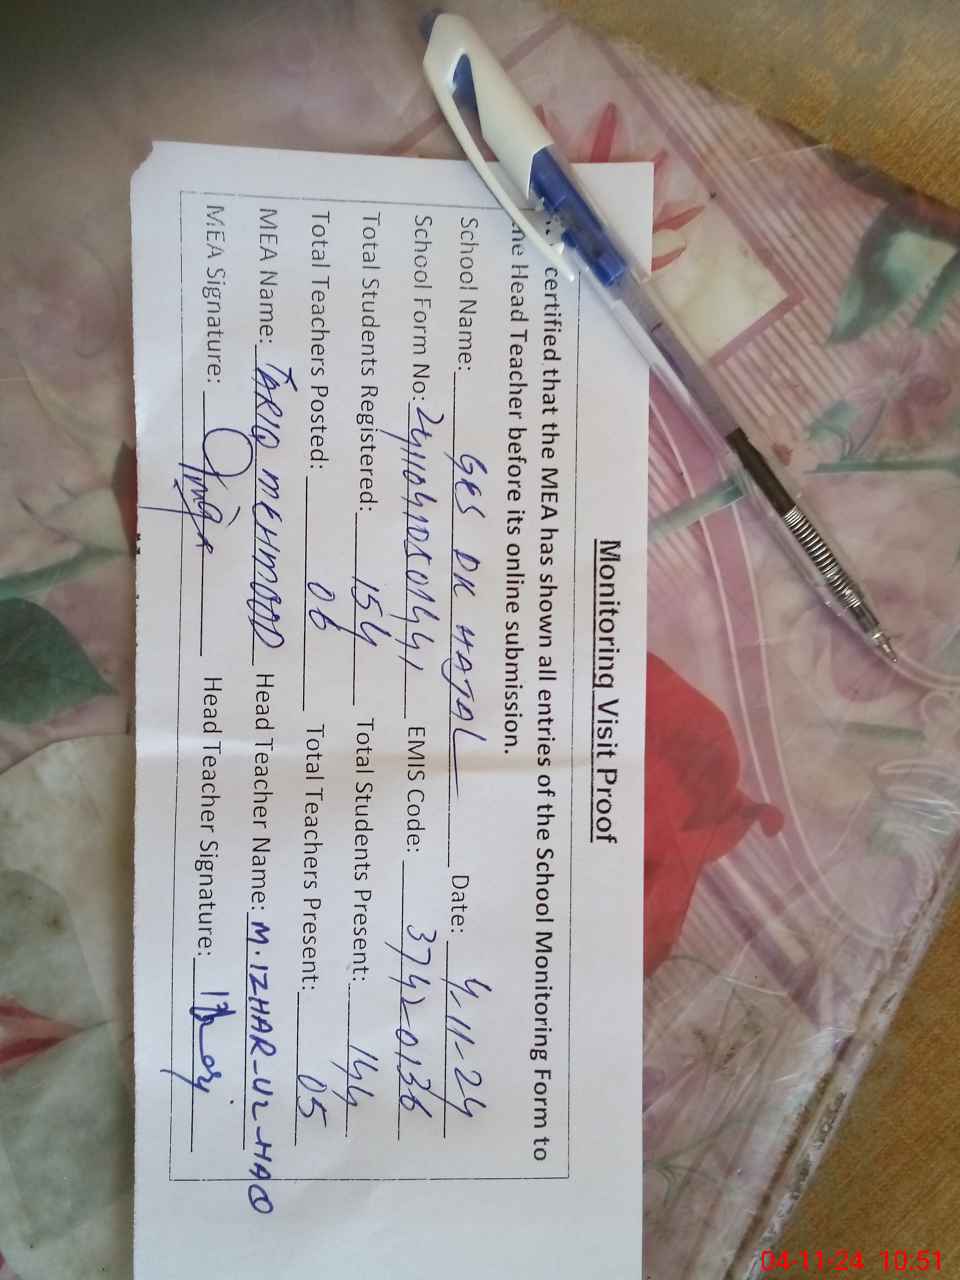 Monitoring Visit Proof
certified that the MEA has shown all entries of the School Monitoring Form to
the Head Teacher before its online submission.
School Name: GES DK HAJAL Date: 4-11-24
School Form No: EMIS Code: 37420136
Total Students Registered: 154 Total Students Present: 144
Total Teachers Posted: 06 Total Teachers Present: 05
MEA Name: TARIQ MEHMOOD Head Teacher Name: M. IZHAR-UL-HAQ
MEA Signature: Head Teacher Signature:
04-11-24 10:51